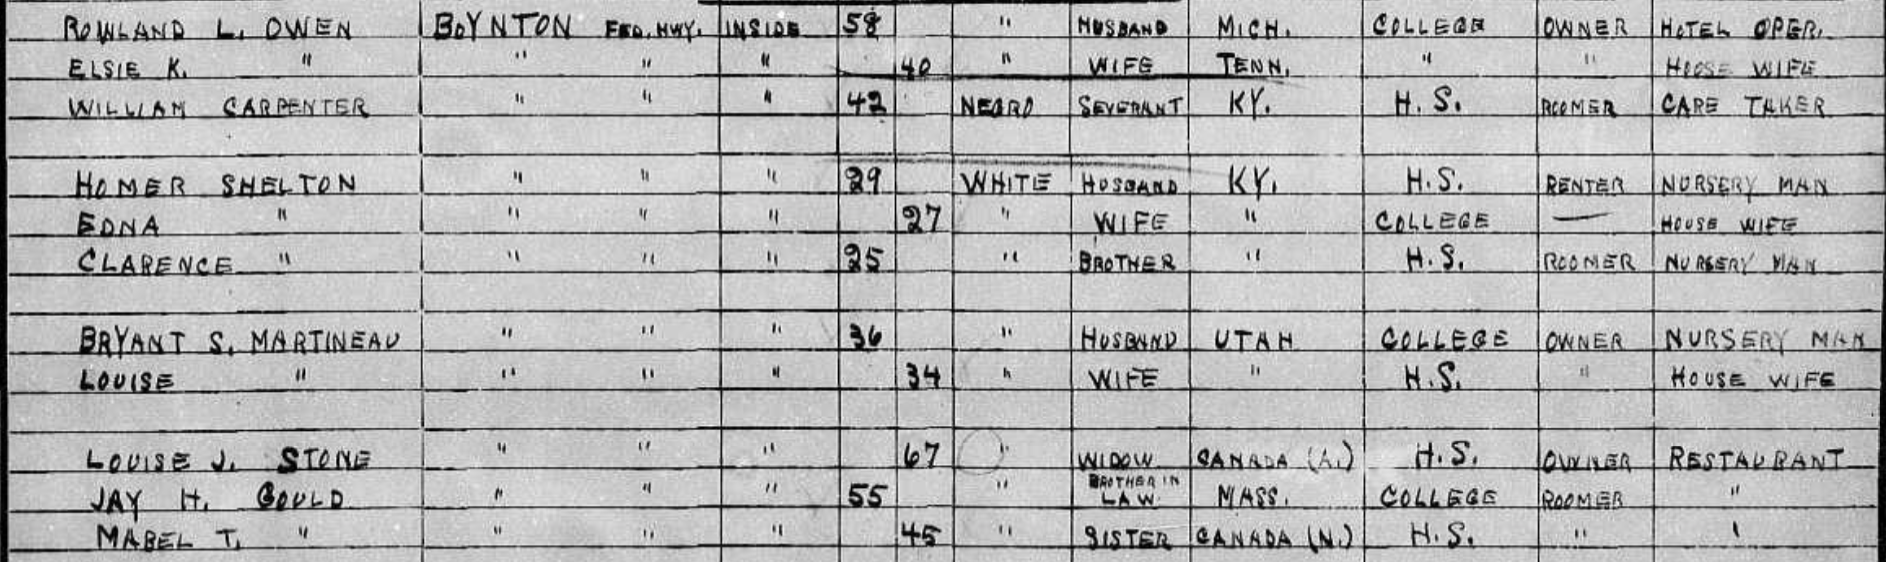 ROWLAND L. OWEN BOYNTON FED. HWY. INSIDE 58 " HUSBAND MICH. COLLEGE OWNER HOTEL OPER.
ELSIE K. " " " " 40 " WIFE TENN. " " HOUSE WIFE
WILLIAM CARPENTER " " " 42 NEGRO SEVERANT KY. H.S. ROOMER CARE TAKER
HOMER SHELTON " " " 29 WHITE HUSBAND KY. H.S. RENTER NURSERY MAN
EDNA " " " " 27 " WIFE " COLLEGE — HOUSE WIFE
CLARENCE " " " " 25 " BROTHER " H.S. ROOMER NURSERY MAN
BRYANT S. MARTINEAU " " " 36 " HUSBAND UTAH COLLEGE OWNER NURSERY MAN
LOUISE " " " " 34 " WIFE " H.S. " HOUSE WIFE
LOUISE J. STONE " " " 67 " WIDOW CANADA (A.) H.S. OWNER RESTAURANT
JAY H. GOULD " " " 55 " BROTHER IN LAW MASS. COLLEGE ROOMER "
MABEL T. " " " " 45 " SISTER CANADA (N.) H.S. " "